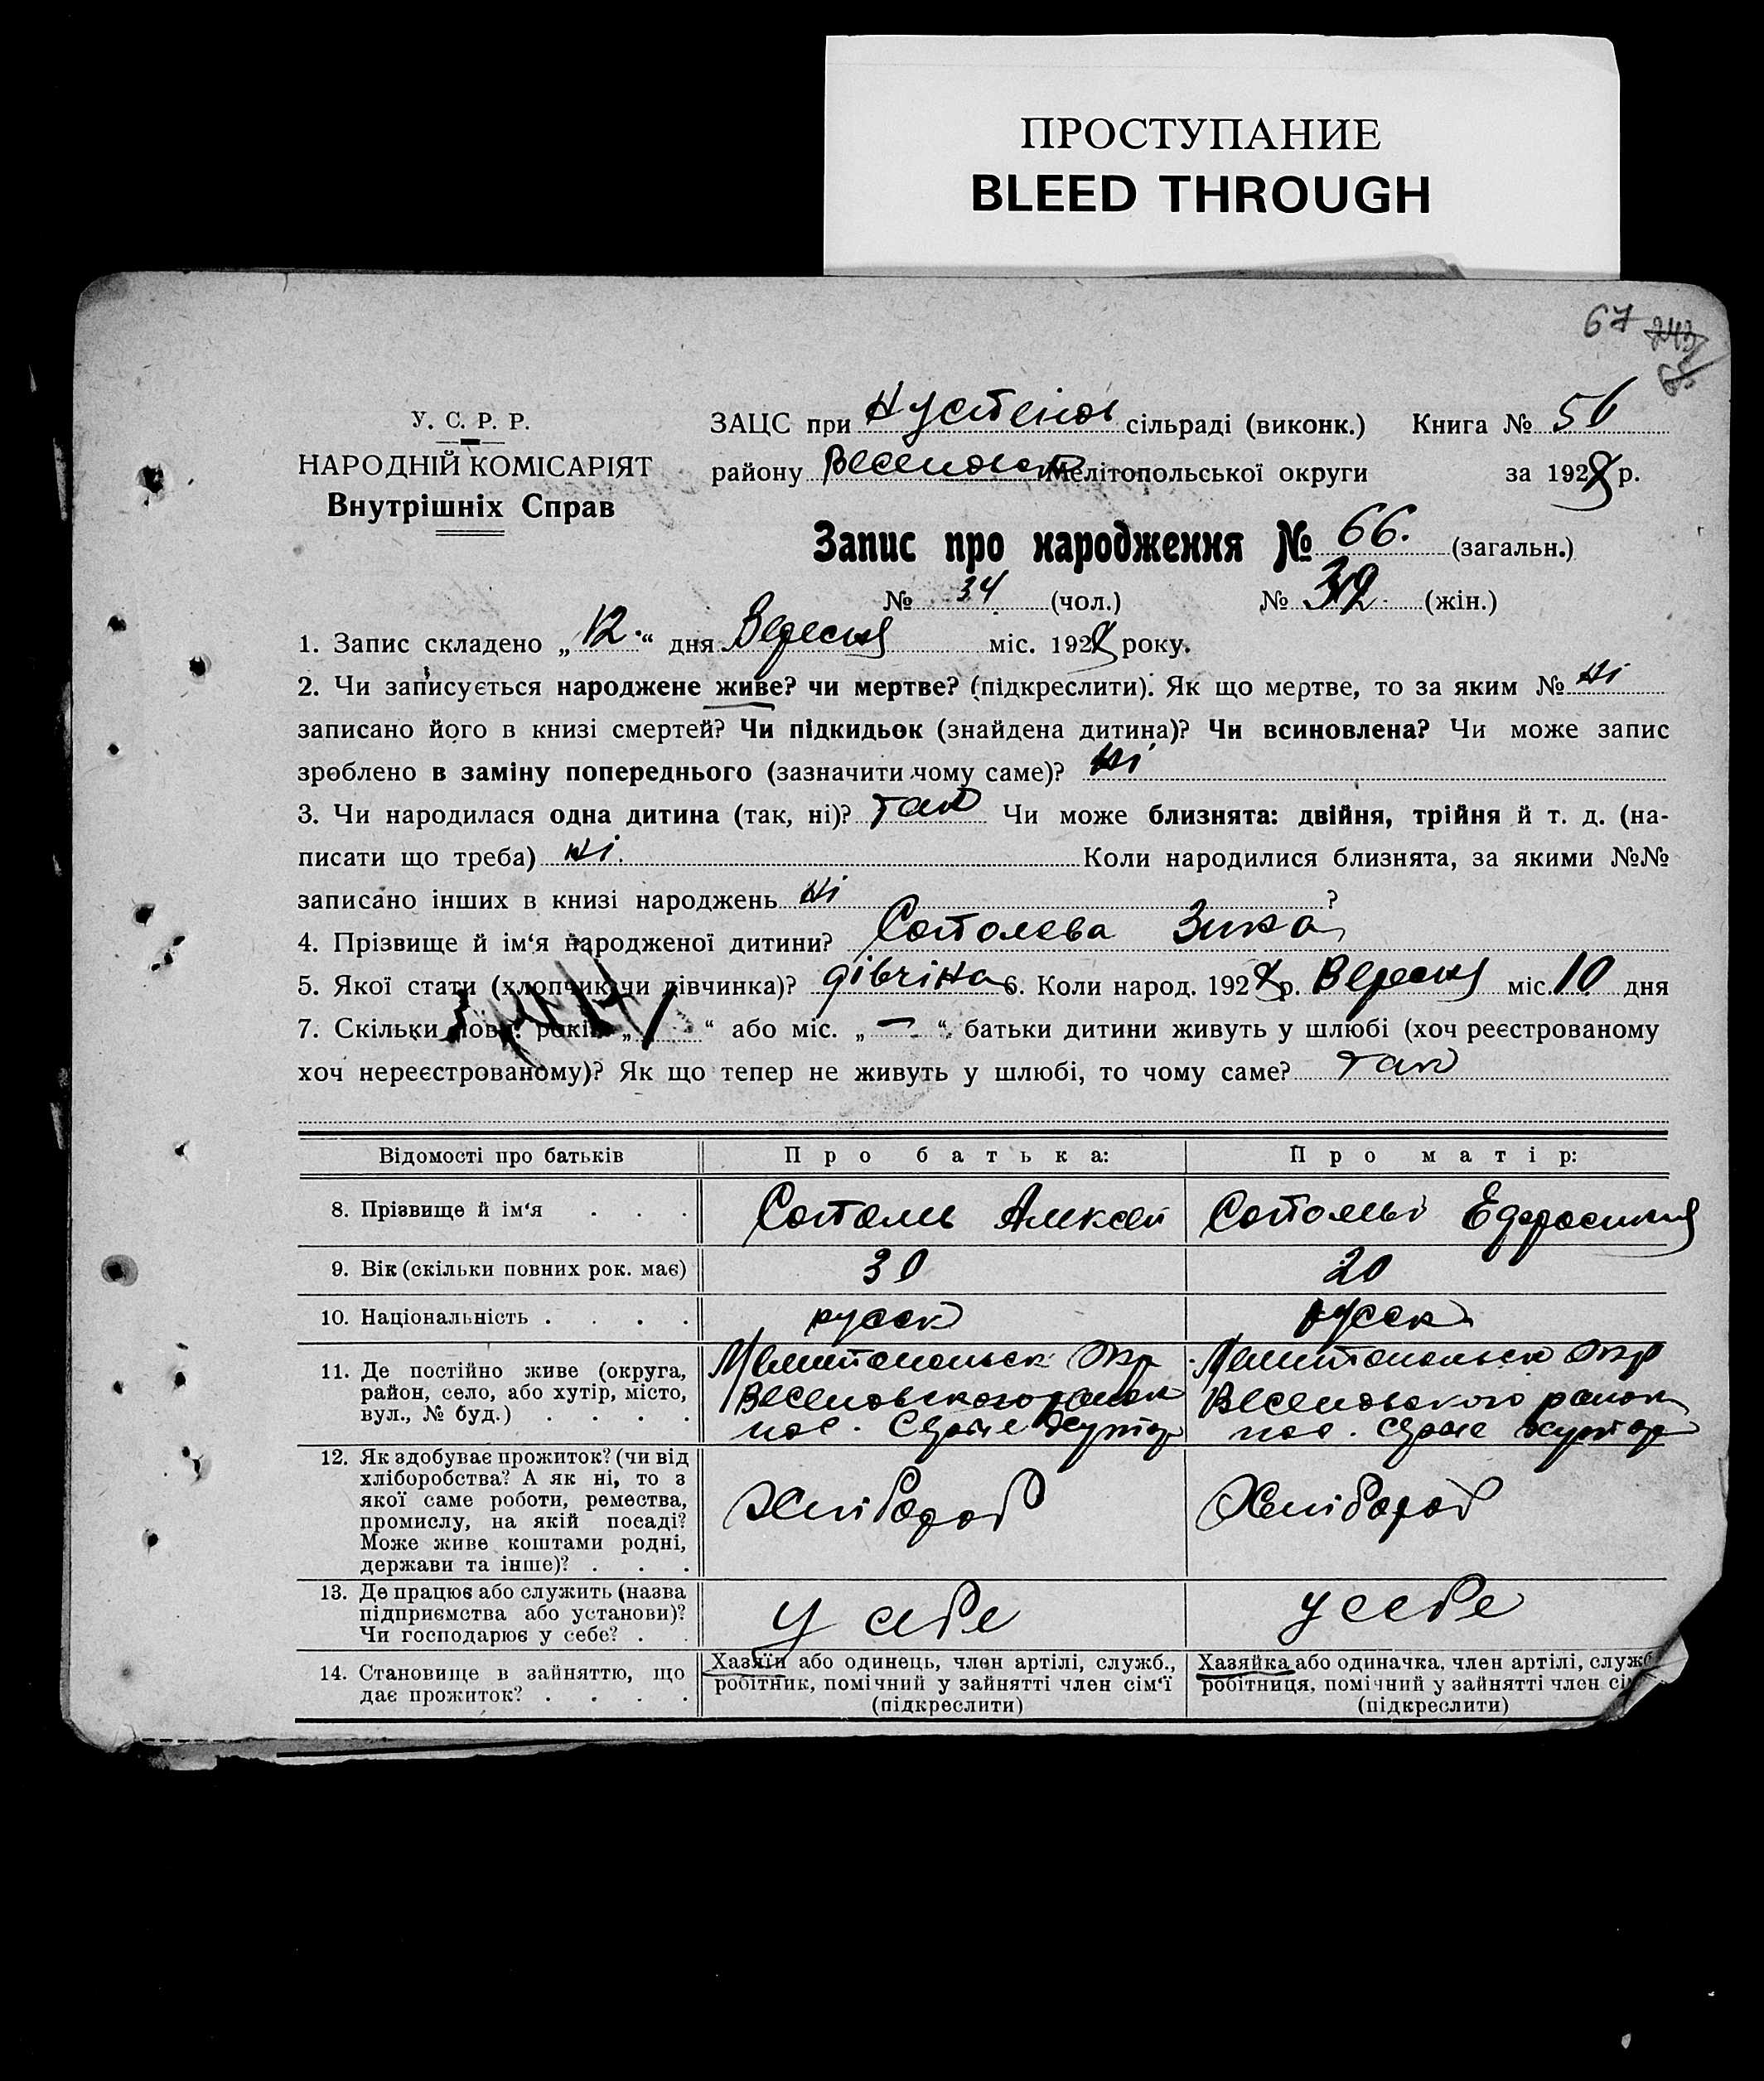 ПРОСТУПАНИЕ
BLEED THROUGH
67
У. С. Р. Р.
НАРОДНІЙ КОМІСАРІЯТ
Внутрішніх Справ
ЗАЦС при сільраді (виконк.) Книга № 56
району Мелітопольської округи за 1928 р.
Запис про народження № 66. (загальн.)
№ 34 (чол.) № (жін.)
1. Запис складено „12.“ дня Вересня міс. 1928 року.
2. Чи записується народжене живе? чи мертве? (підкреслити). Як що мертве, то за яким № ні
записано його в книзі смертей? Чи підкидьок (знайдена дитина)? Чи всиновлена? Чи може запис
зроблено в заміну попереднього (зазначити чому саме)? ні
3. Чи народилася одна дитина (так, ні)? так Чи може близнята: двійня, трійня й т. д. (на-
писати що треба) ні. Коли народилися близнята, за якими №№
записано інших в книзі народжень ні ?
4. Прізвище й ім‘я народженої дитини?
5. Якої стати (хлопчик чи дівчинка)? дівчіна 6. Коли народ. 1928 р. Вересня міс. 10 дня
7. Скільки повн. років „ “ або міс. „ — “ батьки дитини живуть у шлюбі (хоч реєстрованому
хоч нереєстрованому)? Як що тепер не живуть у шлюбі, то чому саме? так
Відомості про батьків Про батька: Про матір:
8. Прізвище й ім‘я . . . Алексей
9. Вік (скільки повних рок. має) 30 20
10. Національність . . . . русск русск
11. Де постійно живе (округа, район, село, або хутір, місто, вул., № буд.) . . . . Мелитопольск Окр Веселовского район пос. Хутор Мелитопольск Окр Веселовского район пос. Хутор
12. Як здобуває прожиток? (чи від хліборобства? А як ні, то з якої саме роботи, ремества, промислу, на якій посаді? Може живе коштами родні, держави та інше)? . . . Хлібороб Хлібороб
13. Де працює або служить (назва підприємства або установи)? Чи господарює у себе? . . у себе у себе
14. Становище в зайняттю, що дає прожиток? . . . . Хазяїн або одинець, член артілі, служб., робітник, помічний у зайнятті член сім‘ї (підкреслити) Хазяйка або одиначка, член артілі, служб робітниця, помічний у зайнятті член сі (підкреслити)